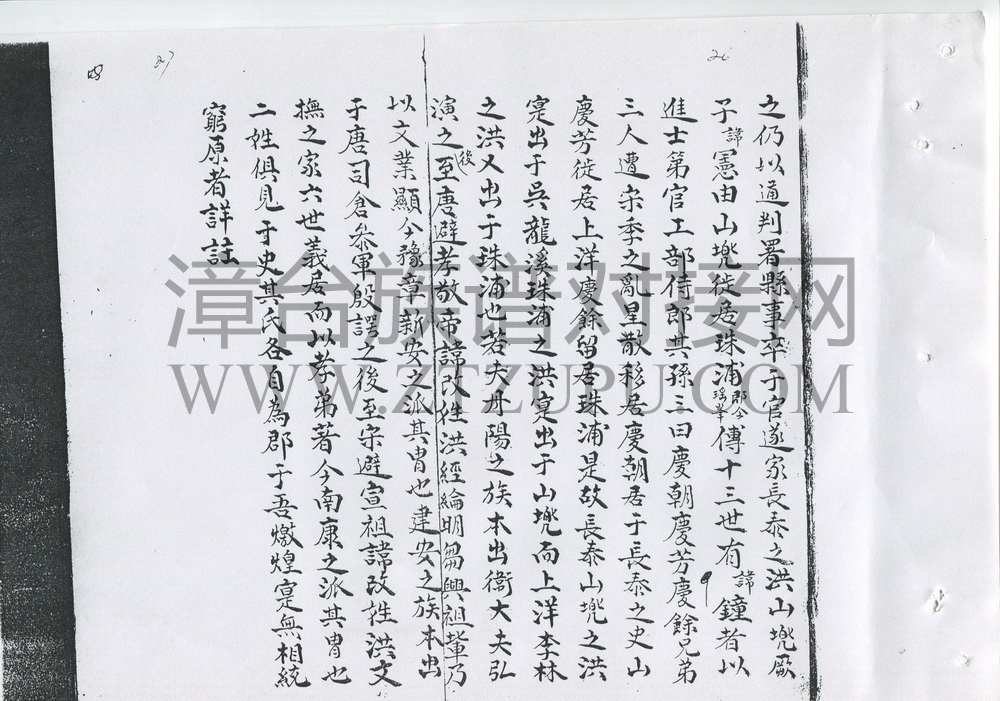 26
27
28
之仍以通判署縣事卒于官遂家長泰之洪山兠厥
子諱憲由山兠徙居珠浦即今瑤峯傳十三世有諱鐘者以
進士第官工部侍郎其孫三曰慶朝慶芳慶餘兄弟
三人遭宋季之亂星散移居慶朝居于長泰之史山
慶芳徙居上洋慶餘留居珠浦是故長泰山兠之洪
寔出于吳龍溪珠浦之洪寔出于山兠而上洋李林
之洪又出于珠浦也若夫丹陽之族本出衛大夫弘
演之後至唐避孝敬帝諱改姓洪經綸明芻興祖輩乃
以文業顯今豫章新安之派其胄也建安之族本出
于唐司倉叅軍殷諤之後至宋避宣祖諱改姓洪文
撫之家六世義居而以孝弟著今南康之派其胄也
二姓俱見于史其氏各自為郡于吾燉煌寔無相統
窮原者詳註
漳台族谱对接网
WWW.ZTZUPU.COM